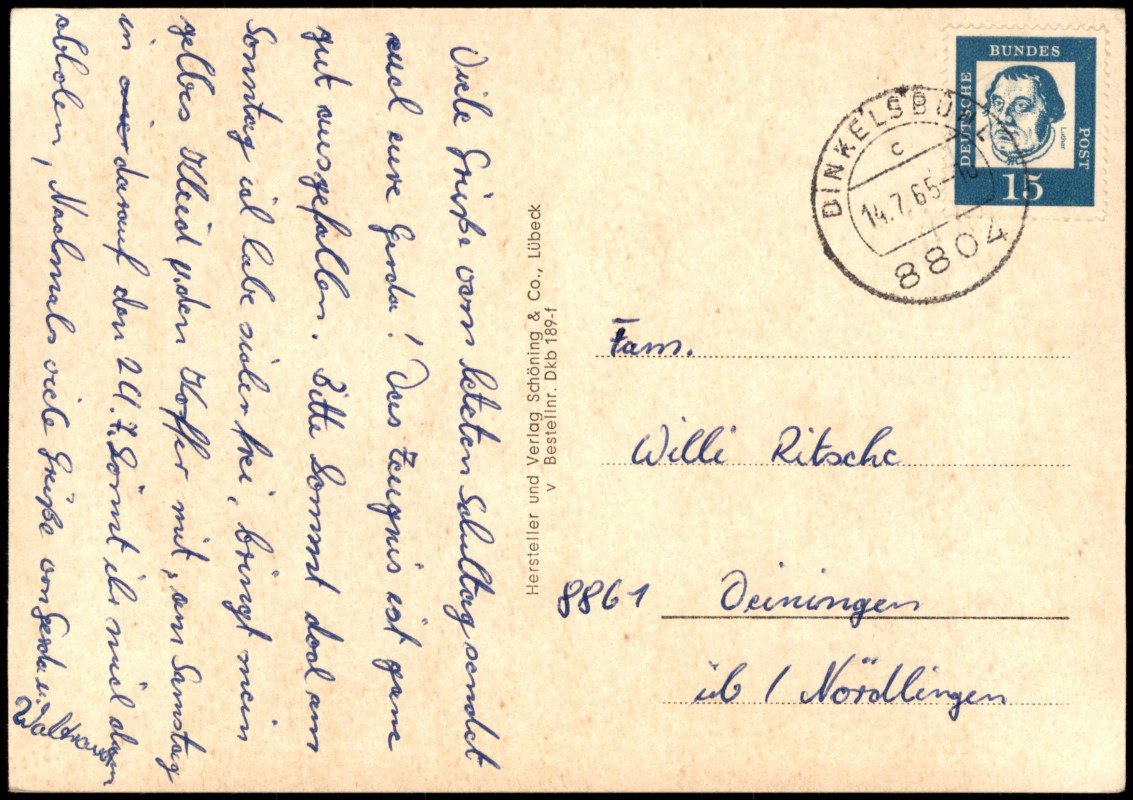 Viele Grüße vom letzten Schultag sendet
euch eure Gerda! Das Zeugnis ist ganz
gut ausgefallen. Bitte kommt doch am
Sonntag ich habe sicher frei, bringt mein
gelbes Kleid u. den Koffer mit, am Samstag
in darauf den 24.7. könnt ihr mich dann
abholen, Nochmals viele Grüße von Gerda u.
Waltraud
Hersteller und Verlag Schöning & Co., Lübeck
v Bestellnr. Dkb 189-f
DEUTSCHE
BUNDES
POST
Luther
15
DINKELSBÜHL
c
14.7.65
8804
Fam.
Willi Ritsche
8861 Deiningen
üb / Nördlingen